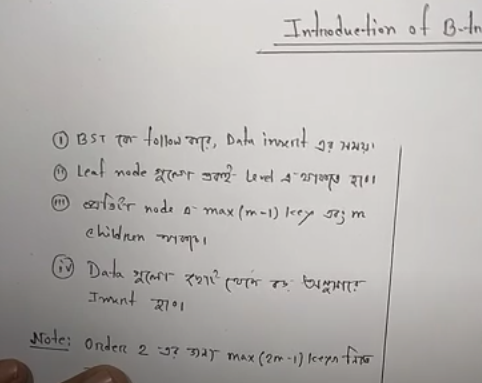 Introduction of B-
① BST কে follow করে, Data insert এর সময়।
② Leaf node গুলো একই Level এ থাকতে হবে।
③ প্রতিটি node এ max (m-1) key এবং m
children থাকবে।
④ Data গুলো ছোট থেকে বড় অনুসারে
Insert হবে।
Note: Order 2 এর জন্য max (2m-1) keys